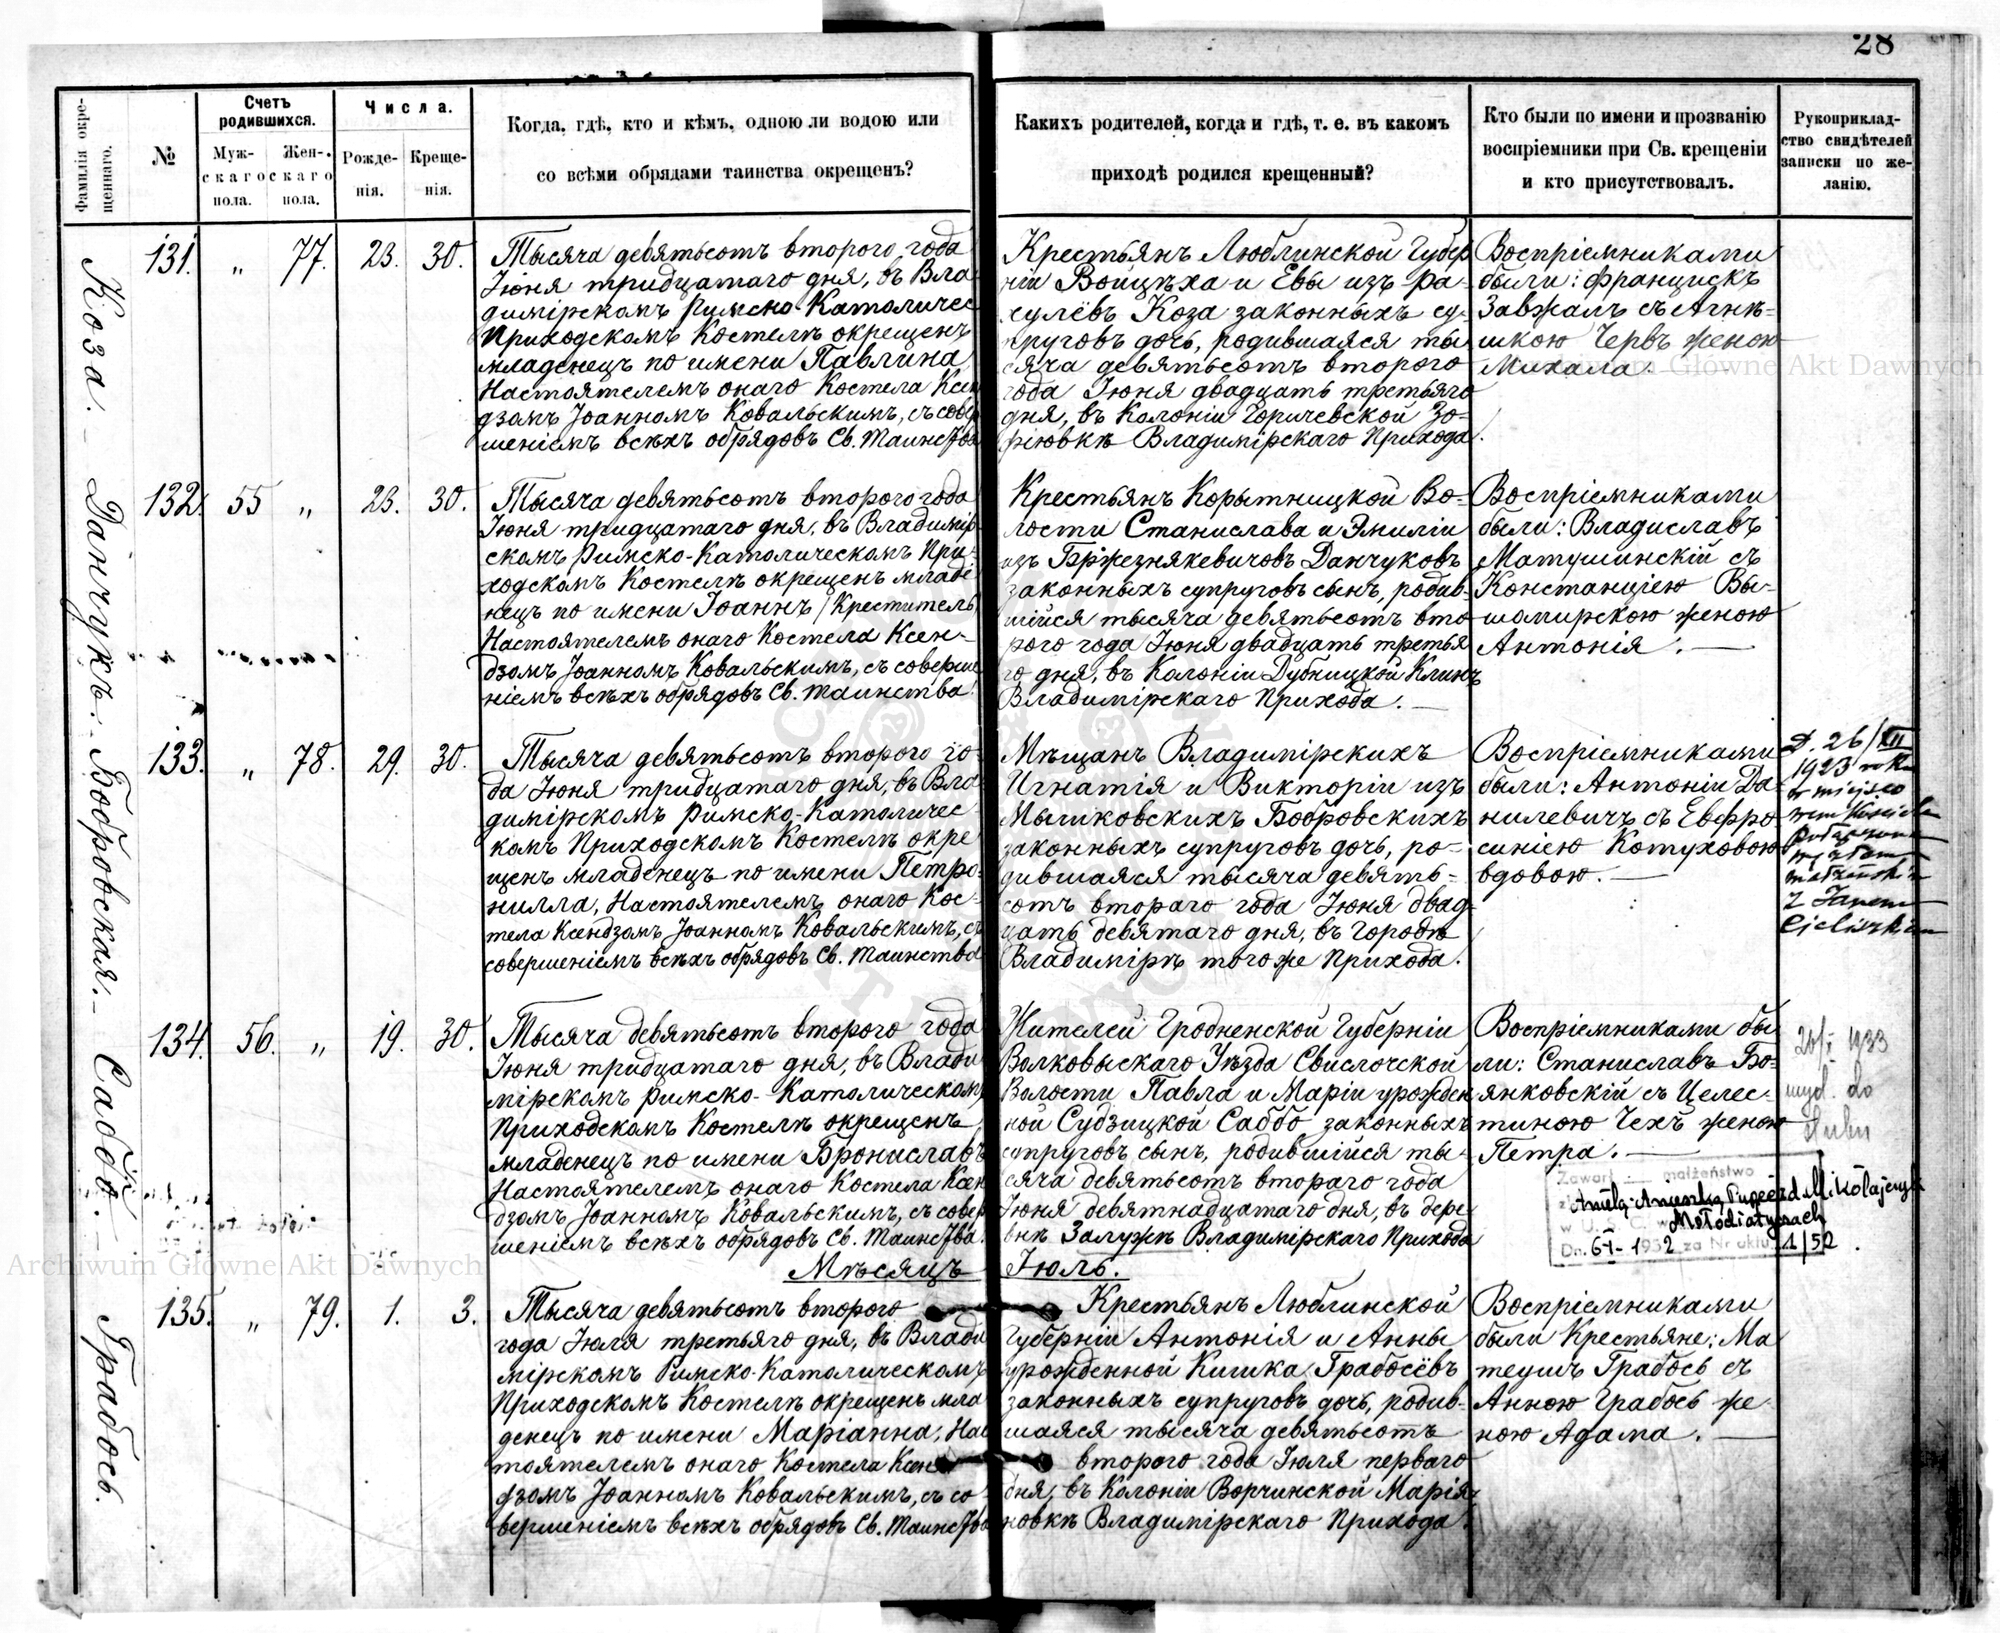 28
Фамилія окре-
щеннаго.
№
Счетъ
родившихся.
Муж-
скаго
пола.
Жен-
скаго
пола.
Числа.
Рожде-
нія.
Креще-
нія.
Когда, гдѣ, кто и кѣмъ, одною ли водою или
со всѣми обрядами таинства окрещенъ?
Какихъ родителей, когда и гдѣ, т. е. въ какомъ
приходѣ родился крещенный?
Кто были по имени и прозванію
воспріемники при Св. крещеніи
и кто присутствовалъ.
Рукоприклад-
ство свидѣтелей
записки по же-
ланію.
Коза.
131. " 77. 23. 30.
Тысяча девятьсотъ втораго года
Іюня тридцатаго дня, въ Вла-
димірскомъ Римско-Католичес
Приходскомъ Костелѣ окрещенъ
младенецъ по имени Павлина
Настоятелемъ онаго Костела Ксен
дзомъ Іоанномъ Ковальскимъ, съ совер
шеніемъ всѣхъ обрядовъ Св. Таинства
Крестьянъ Люблинской Губер
ніи Войцѣха и Евы изъ Ра-
сулёвъ Коза законныхъ су-
пруговъ дочь, родившаяся ты
сяча девятьсотъ второго
года Іюня двадцать третьяго
дня, въ Колоніи Горичевской Зо-
рювкѣ Владимірскаго Прихода.
Воспріемниками
были: Францискъ
Завжалъ съ Агнѣ-
шкою Червъ женою
Михала.
Данчукъ.
132. 55 " 23. 30.
Тысяча девятьсотъ второго года
Іюня тридцатаго дня, въ Владимір
скомъ Римско-Католическомъ При-
ходскомъ Костелѣ окрещенъ младе
нецъ по имени Іоаннъ /Креститель/
Настоятелемъ онаго Костела Ксен-
дзомъ Іоанномъ Ковальскимъ, съ соверше
ніемъ всѣхъ обрядовъ Св. Таинства.
Крестьянъ Корытницкой Во-
лости Станислава и Эмиліи
изъ Бржезнякевичовъ Данчуковъ
законныхъ супруговъ сынъ, родив-
шійся тысяча девятьсотъ вто
рого года Іюня двадцать третья
го дня, въ Колоніи Дубницкой Клинъ
Владимірскаго Прихода.
Воспріемниками
были: Владиславъ
Матушинскій съ
Констанціею Вы-
шомирскою женою
Антонія.
Бобровская.
133. " 78. 29. 30.
Тысяча девятьсотъ второго го-
да Іюня тридцатаго дня, въ Вла-
димірскомъ Римско-Католичес-
комъ Приходскомъ Костелѣ окре
щенъ младенецъ по имени Петро-
нилла, Настоятелемъ онаго Кос-
тела Ксендзомъ Іоанномъ Ковальскимъ, съ
совершеніемъ всѣхъ обрядовъ Св. Таинства
Мѣщанъ Владимірскихъ
Игнатія и Викторіи изъ
Мышковскихъ Бобровскихъ
законныхъ супруговъ дочь, ро-
дившаяся тысяча девять-
сотъ втораго года Іюня двад-
цать девятаго дня, въ Городѣ
Владимірѣ того же Прихода.
Воспріемниками
были: Антоній Да-
нилевичъ съ Евфро-
синіею Котуховою
вдовою.
D. 26/XII
1923 roku
w miejsco
z Janem
Саббо.
134. 56. " 19. 30.
Тысяча девятьсотъ второго года
Іюня тридцатаго дня, въ Влади
мірскомъ Римско-Католическомъ
Приходскомъ Костелѣ окрещенъ
младенецъ по имени Брониславъ
Настоятелемъ онаго Костела Ксен
дзомъ Іоанномъ Ковальскимъ, съ совер
шеніемъ всѣхъ обрядовъ Св. Таинства.
Жителей Гродненской Губерніи
Волковыскаго Уѣзда Свислочской
Волости Павла и Маріи урожден
ной Судзицкой Саббо законныхъ
супруговъ сынъ, родившійся ты-
сяча девятьсотъ втораго года
Іюня девятнадцатаго дня, въ дере
внѣ Залужѣ Владимірскаго Прихода
Воспріемниками бы
ли: Станиславъ Бо-
янковскій съ Целес-
тиною Чехъ женою
Петра.
1933
wyd. do
ślubu
Zawarł małżeństwo
Mikołajczyk
Mołodiatyczach
Dn. 1932 za Nr aktu 1/52
Мѣсяцъ Іюль.
Грабось.
135. " 79. 1. 3.
Тысяча девятьсотъ второго
года Іюля третьяго дня, въ Влади
мірскомъ Римско-Католическомъ
Приходскомъ Костелѣ окрещенъ мла
денецъ по имени Маріанна, Нас
тоятелемъ онаго Костела Ксен
дзомъ Іоанномъ Ковальскимъ, съ со
вершеніемъ всѣхъ обрядовъ Св. Таинства
Крестьянъ Люблинской
Губерніи Антонія и Анны
урожденной Кишка Грабосёвъ
законныхъ супруговъ дочь, родив-
шаяся тысяча девятьсотъ
второго года Іюля перваго
дня, въ Колоніи Ворчинской Марія
новкѣ Владимірскаго Прихода.
Воспріемниками
были Крестьяне: Ма
теушъ Грабось съ
Анною Грабось же
ною Адама.
Archiwum Główne Akt Dawnych
Archiwum Główne Akt Dawnych